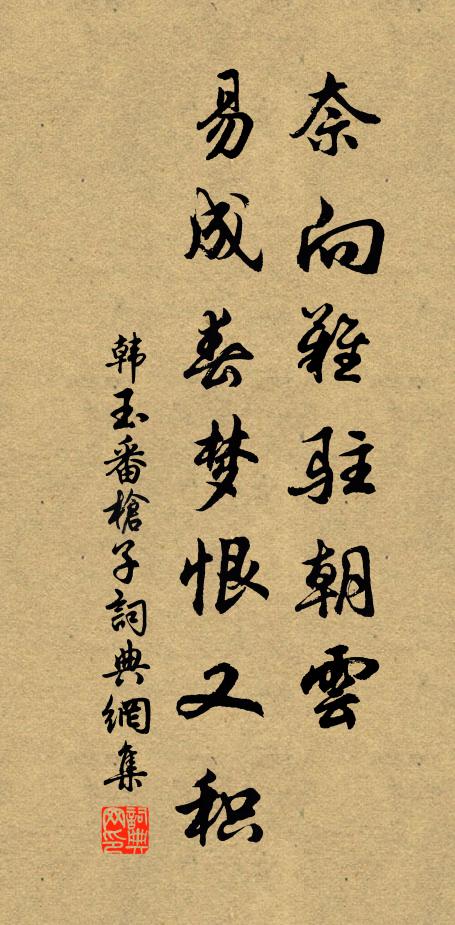 奈向難駐朝雲
易成春梦恨又积
韩玉番槍子詞典網集
詞典网印